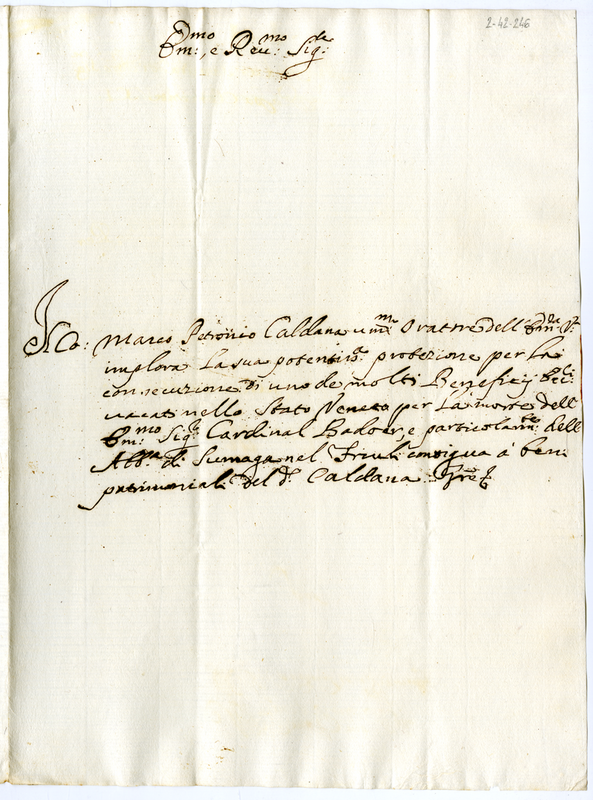 2-42-246
Em:mo, e Reu:mo Sig:re
Il Co: Marco Petronio Caldana um:mo Oratore dell' Em:za V:ra
implora la sua potentis:ma protezione per la
consecuzione di uno de molti Beneficij Ecc:li
uacati nello Stato Veneto per la morte dell
Em:mo Sig:r Cardinal Badoer, e particolarm:te dell
Abb:a di Sumaga nel Friuli contigua à beni
patrimoniali del d:o Caldana